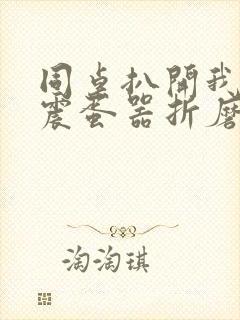 同桌扒開我
震蛋器折磨
淘淘琪